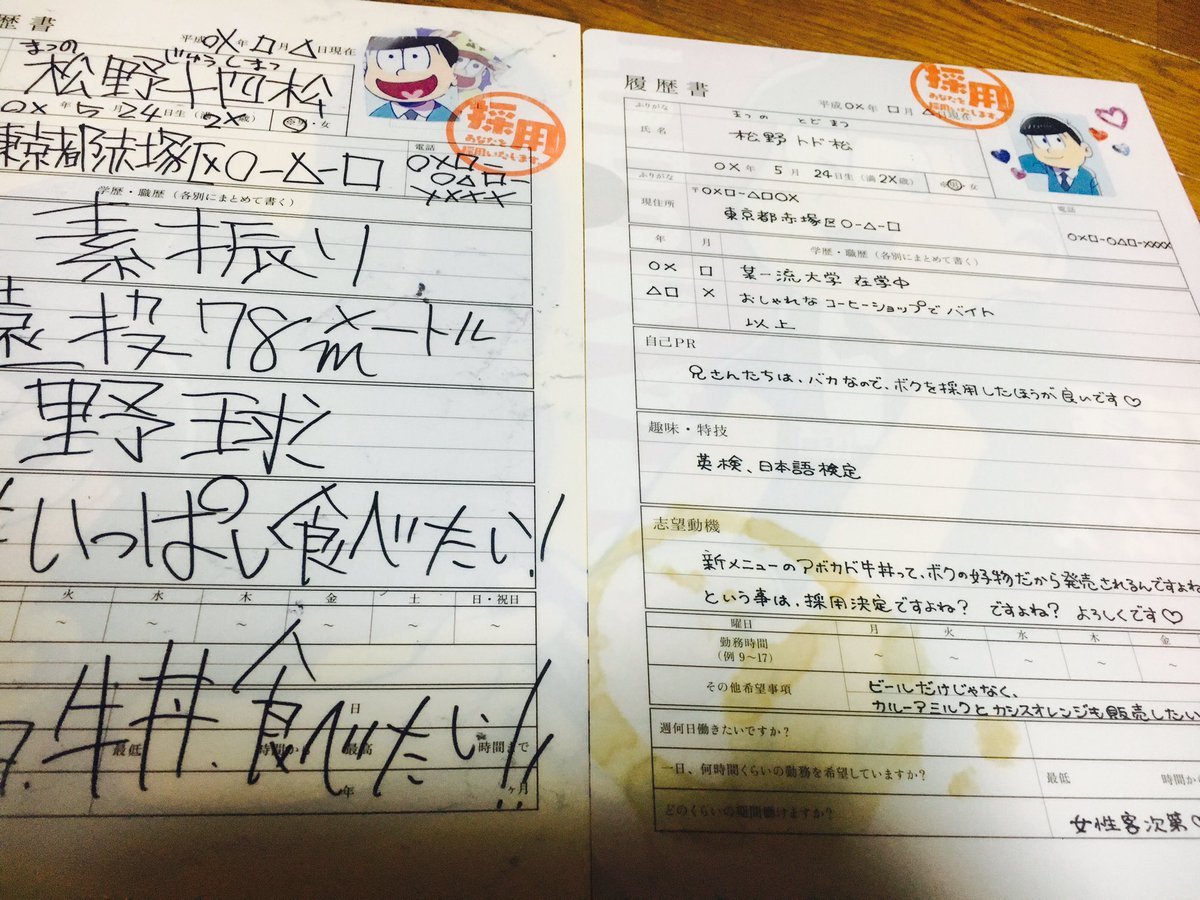 歴書
平成○×年□月△日現在
まつの じゅうしまつ
松野十四松
○×年5月24日生(満2×歳)
男・女
採用
あなたを
採用いたします。
東京都赤塚区○-△-□
電話
○×□-
○△□-
××××
学歴・職歴(各別にまとめて書く)
素振り
遠投78メートル
m
野球
いっぱい食べたい!
火 水 木 金 土 日・祝日
~ ~ ~ ~ ~ ~
牛丼、食べたい!!
日
最低 時間から 最高 時間まで
年 ヶ月
履歴書
平成○×年□月△日現在
採用
あなたを
採用いたします。
ふりがな
まつの とどまつ
氏名
松野トド松
○×年5月24日生(満2×歳)
男・女
ふりがな
〒○×□-△□○×
現住所
東京都赤塚区○-△-□
電話
○×□-○△□-××××
年 月 学歴・職歴(各別にまとめて書く)
○× □ 某一流大学 在学中
△□ × おしゃれなコーヒーショップでバイト
以上
自己PR
兄さんたちは、バカなので、ボクを採用したほうが良いです♡
趣味・特技
英検、日本語検定
志望動機
新メニューのアボカド牛丼って、ボクの好物だから発売されるんですよね
という事は、採用決定ですよね? ですよね? よろしくです♡
曜日 月 火 水 木 金
勤務時間
(例 9~17)
~ ~ ~ ~ ~
その他希望事項
ビールだけじゃなく、
カルーアミルクとカシスオレンジも販売したい
週何日働きたいですか?
一日、何時間くらいの勤務を希望していますか?
最低 時間から
どのくらいの期間働けますか?
女性客次第♡